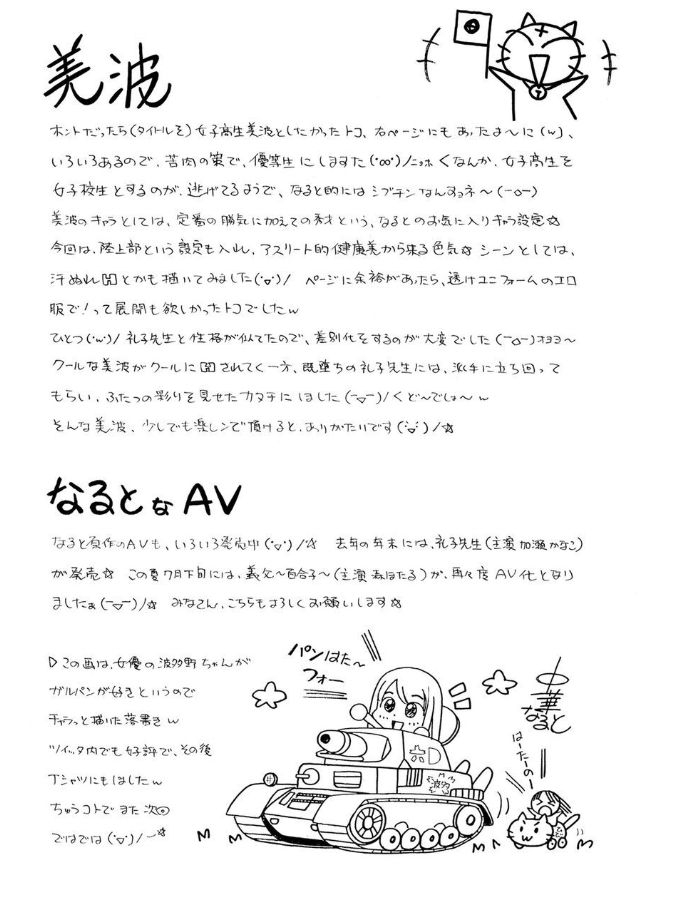 美波
ホントだったら(タイトルを)女子高生美波としたかったトコ、右ページにもあったよーに(ﾉ∀`)、
いろいろあるので、苦肉の策で、優等生にしますた(`ooo´)/ﾆｯﾎ くなんか、女子高生を
女子校生とするのが、逃げてるようで、なると的にはシブチンなんすヨネ〜(-o-)
美波のキャラとしては、定番の勝気に加えての秀才という、なるとのお気に入りキャラ設定☆
今回は、陸上部という設定も入れ、アスリート的健康美から来る色気☆シーンとしては、
汗ぬれHとかも描いてみました(˙▿˙)/ ページに余裕があったら、透けユニフォームのエロ
服で!って展開も欲しかったトコでしたw
ひとつ(˙w˙)/ 礼子先生と性格が似てたので、差別化をするのが大変でした(-o-)ｵﾖﾖ〜
クールな美波がクールに凹されてく一方、既堕ちの礼子先生には、派手に立ち回って
もらい、ふたつの彩りを見せたカタチにしました(-▿-)/くど〜でしょ〜w
そんな美波、少しでも楽しンで頂けると、ありがたいです(˙▿˙)/☆
なるとなAV
なると原作のAVも、いろいろ発売中(˙▿˙)/☆ 去年の年末には、礼子先生(主演 加瀬かなこ)
が発売☆ この夏7月下旬には、義父〜百合子〜(主演 森ほたる)が、再々度AV化となり
ましたぁ(-▿-)/☆ みなさん、こちらもよろしくお願いします☆
▷この画は、女優の波多野ちゃんが
ガルパンが好きというので
チャラっと描いた落書きw
ツイッタ内でも好評で、その後
Tシャツにもしましたw
ちゅうコトでまた次回
ではでは(˙▿˙)/~☆
パンはた〜
フォー
六D
波多
の
中華
なると
はーたーのー